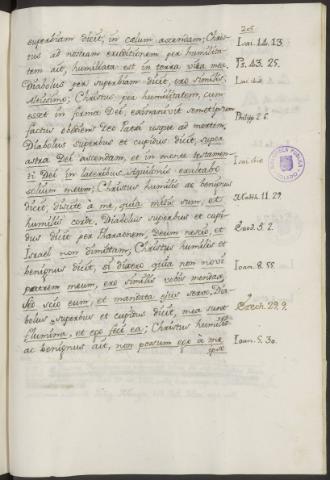 205
superbiam dicit, in cœlum ascendam; Chris-
tus ad nostram eruditionem per humilita-
tem ait, humiliata est in terra vita mea.
Diabolus per superbiam dicit, ero similis
Altissimo; Christus per humilitatem, cum
esset in forma Dei, exinanivit semetipsum
factus obediens Deo Patri usque ad mortem,
Diabolus superbus et cupidus dicit, super
astra Dei ascendam, et in monte testamen-
ti Dei in lateribus Aquilonis exaltabo
solium meum; Christus humilis ac benignus
dicit, discite à me, quia mitis sum, et
humilis corde. Diabolus superbus et cupi-
dus dicit per Pharaonem, Deum nescio, et
Israel non dimittam; Christus humilis et
benignus dicit, si dixero quia non novi
patrem meum, ero similis vobis mendax,
sed scio eum, et mandata ejus servo. Dia-
bolus superbus et cupidus dicit, mea sunt
flumina, et ego feci ea; Christus humilis
ac benignus ait, non possum ego à me
ipse
Isai. 14. 13.
Ps. 43. 25.
Isai. ibid.
Philipp. 2. 6.
Isai. ibid.
Matth. 11. 29.
Exod. 5. 2.
Ioan. 8. 55.
Ezech. 29. 9.
Ioan. 5. 30.